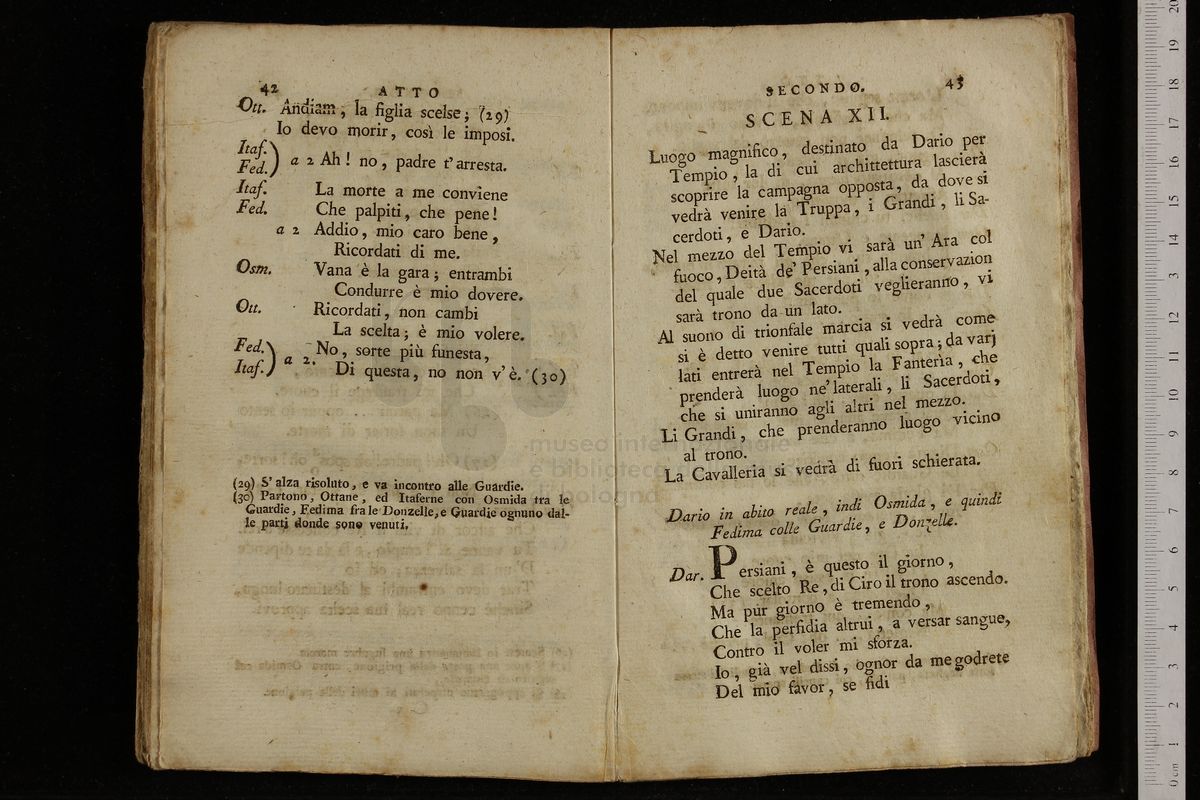 42 ATTO
Ott. Andiam, la figlia scelse; (29)
Io devo morir, così le imposi.
Itaf.
Fed.) a 2 Ah! no, padre t'arresta.
Itaf. La morte a me conviene
Fed. Che palpiti, che pene!
a 2 Addio, mio caro bene,
Ricordati di me.
Osm. Vana è la gara; entrambi
Condurre è mio dovere.
Ott. Ricordati, non cambi
La scelta; è mio volere.
Fed.) a 2. No, sorte più funesta,
Itaf.) Di questa, no non v'è. (30)
(29) S'alza risoluto, e va incontro alle Guardie.
(30) Partono, Ottane, ed Itaferne con Osmida tra le
Guardie, Fedima fra le Donzelle, e Guardie ognuno dal-
le parti donde sono venuti.
SECONDO. 43
SCENA XII.
Luogo magnifico, destinato da Dario per
Tempio, la di cui archittettura lascierà
scoprire la campagna opposta, da dove si
vedrà venire la Truppa, i Grandi, li Sa-
cerdoti, e Dario.
Nel mezzo del Tempio vi sarà un' Ara col
fuoco, Deità de' Persiani, alla conservazion
del quale due Sacerdoti veglieranno, vi
sarà trono da un lato.
Al suono di trionfale marcia si vedrà come
si è detto venire tutti quali sopra; da varj
lati entrerà nel Tempio la Fanterìa, che
prenderà luogo ne' laterali, li Sacerdoti,
che si uniranno agli altri nel mezzo.
Li Grandi, che prenderanno luogo vicino
al trono.
La Cavalleria si vedrà di fuori schierata.
Dario in abito reale, indi Osmida, e quindi
Fedima colle Guardie, e Donzelle.
Dar. Persiani, è questo il giorno,
Che scelto Re, di Ciro il trono ascendo.
Ma pur giorno è tremendo,
Che la perfidia altrui, a versar sangue,
Contro il voler mi sforza.
Io, già vel dissi, ognor da me godrete
Del mio favor, se fidi